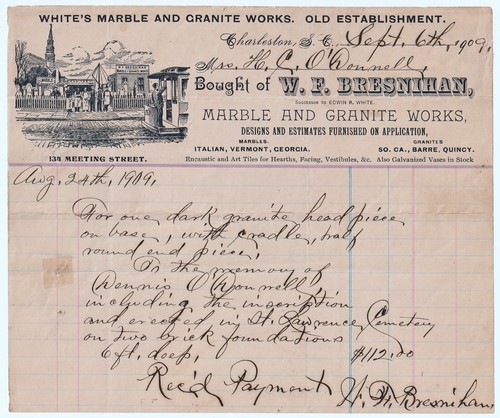 WHITE'S MARBLE AND GRANITE WORKS. OLD ESTABLISHMENT.
Charleston, S. C., Sept. 6th, 1909,
Mrs. H. C. O'Donnell,
Bought of W. F. BRESNIHAN,
Successor to EDWIN R. WHITE.
MARBLE AND GRANITE WORKS,
DESIGNS AND ESTIMATES FURNISHED ON APPLICATION,
MARBLES. GRANITES
ITALIAN, VERMONT, GEORGIA. SO. CA., BARRE, QUINCY.
134 MEETING STREET. Encaustic and Art Tiles for Hearths, Facing, Vestibules, &c. Also Galvanized Vases in Stock
Aug. 24th, 1909,
For one dark granite head piece
on base, with cradle, half
round end piece,
To the memory of
Dennis O'Donnell,
including the inscription
and erected in St. Lawrence Cemetery
on two brick foundations
6 ft. deep, $112.00
Rec'd Payment
W. F. Bresnihan,